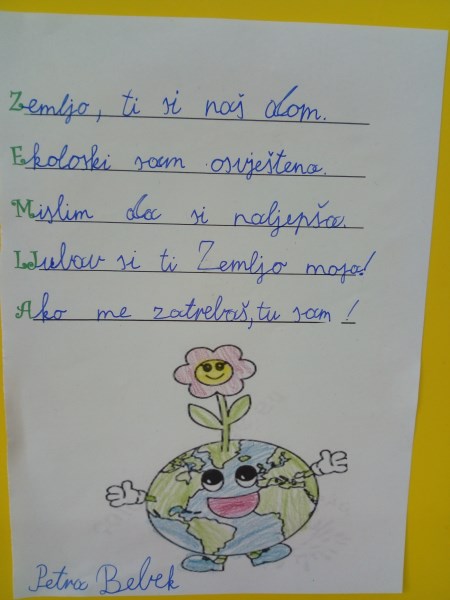 Zemljo, ti si naš dom.
Ekoloski sam osvještena.
Mislim da si naljepša.
LJubav si ti Zemljo moja!
Ako me zatrebaš, tu sam !
Petra Bebek